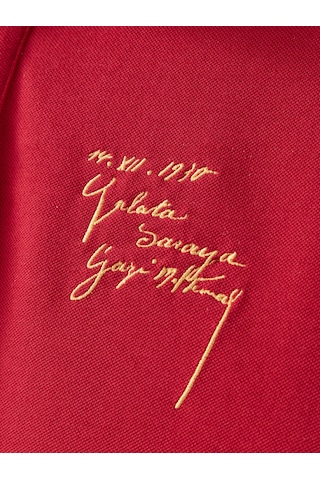 14. XII. 1930
Galata
Saraya
Gazi M. Kemal